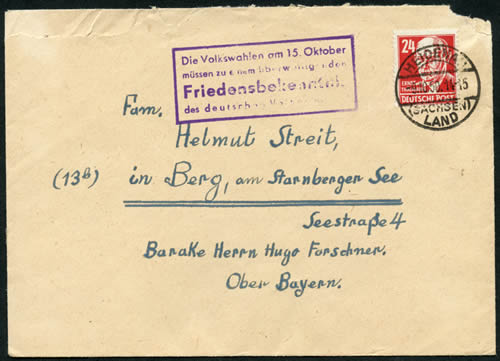 Die Volkswahlen am 15. Oktober
müssen zu einem überwältigenden
Friedensbekenntnis
des deutschen
24
DEUTSCHE POST
(SACHSEN)
LAND
Fam.
Helmut Streit,
(13b) in Berg, am Starnberger See
Seestraße 4
Barake Herrn Hugo Forschner.
Ober Bayern.